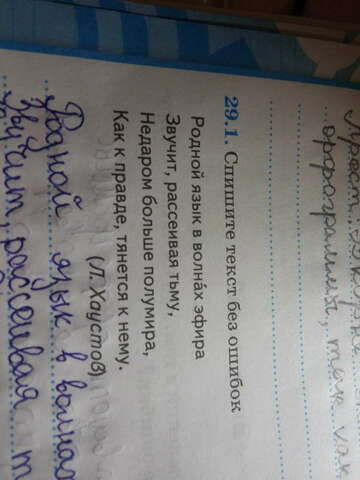 орфограммы, так как
29.1. Спишите текст без ошибок
Родной язык в волна́х эфира
Звучит, рассеивая тьму,
Недаром больше полумира,
Как к правде, тянется к нему.
(Л. Хаустов)
Родной язык в волнах
Звучит, рассеивая т